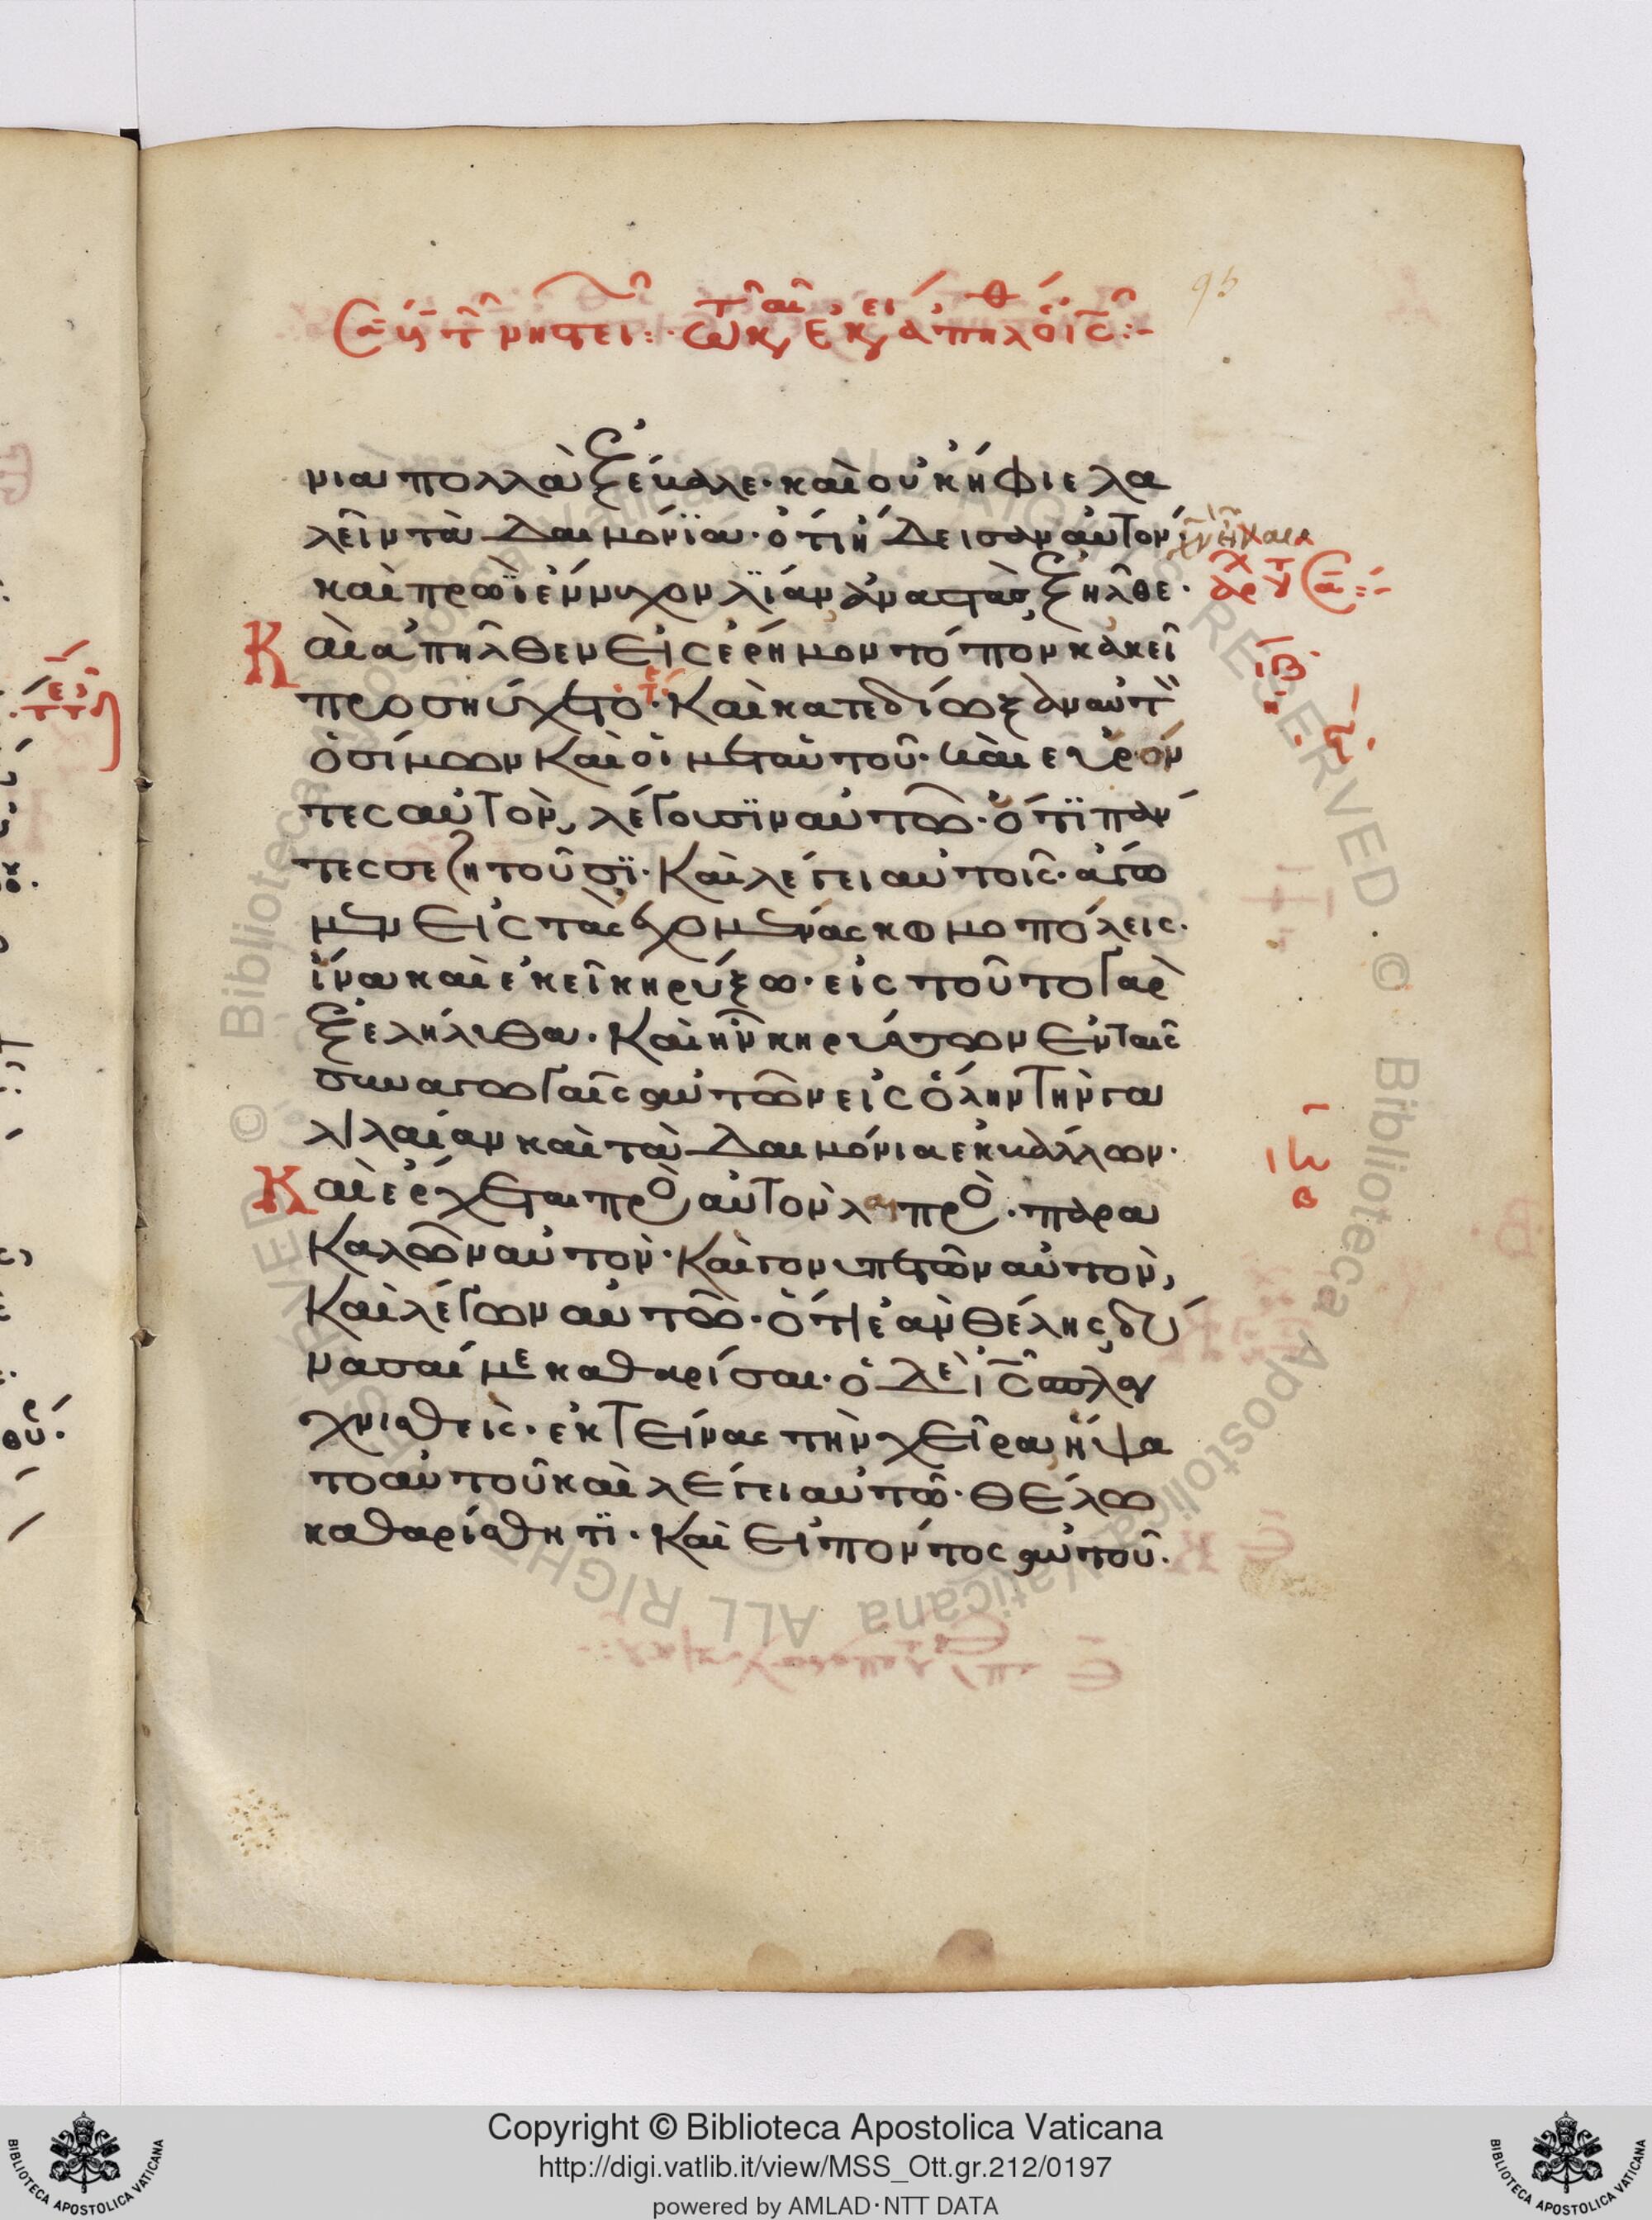 95
μια πολλὰ ἐξέβαλε· καὶ οὐκ ἤφιε λα
λεῖν τὰ δαιμόνϊα· ὅτι ἤδεισαν αὐτὸν
καὶ πρωῒ ἔννυχον λϊάν ἀναστὰς ἐξῆλθε·
Καὶ ἀπῆλθεν εἰς ἔρημον τόπον κἀκεῖ
προσηύχετο· Καὶ κατεδίωξαν αὐτ
ὁ σίμων καὶ οἱ μετ αὐτοῦ· καὶ εὑρόν
τες αὐτὸν, λέγουσϊν αὐτῶ· ὅτϊ πάν
τες σε ζητοῦσϊ· Καὶ λέγει αὐτοῖς· ἄγω
μεν εἰς τὰς ἐχομένας κομοπόλεις·
ἵνα καὶ ἐκεῖ κηρύξω· εἰς τοῦτο γὰρ
ἐξελήλυθα· Καὶ ἦν κηρύσσων ἐν ταῖς
συναγωγαῖς αὐτῶν εἰς ὅλην τὴν γα
λιλαίαν καὶ τὰ δαιμόνια ἐκβάλλων·
Καὶ ἔρχεται πρὸ αὐτὸν λεπρὸ· παρα
καλῶν αὐτὸν· Καὶ γονυπετῶν αὐτὸν,
Καὶ λέγων αὐτῶ· ὅτι ἐὰν θέλης, δύ
νασαί με καθαρίσαι· ὁ δὲ ις σπλαγ
χνισθεὶς· ἐκτείνας τὴν χεῖρα, ἥψα
το αὐτοῦ καὶ λέγει αὐτῶ· θέλω
καθαρίσθητϊ· Καὶ εἰπόντος αὐτοῦ·
ιβ
Copyright © Biblioteca Apostolica Vaticana
http://digi.vatlib.it/view/MSS_Ott.gr.212/0197
powered by AMLAD·NTT DATA
BIBLIOTECA APOSTOLICA VATICANA
BIBLIOTECA APOSTOLICA VATICANA